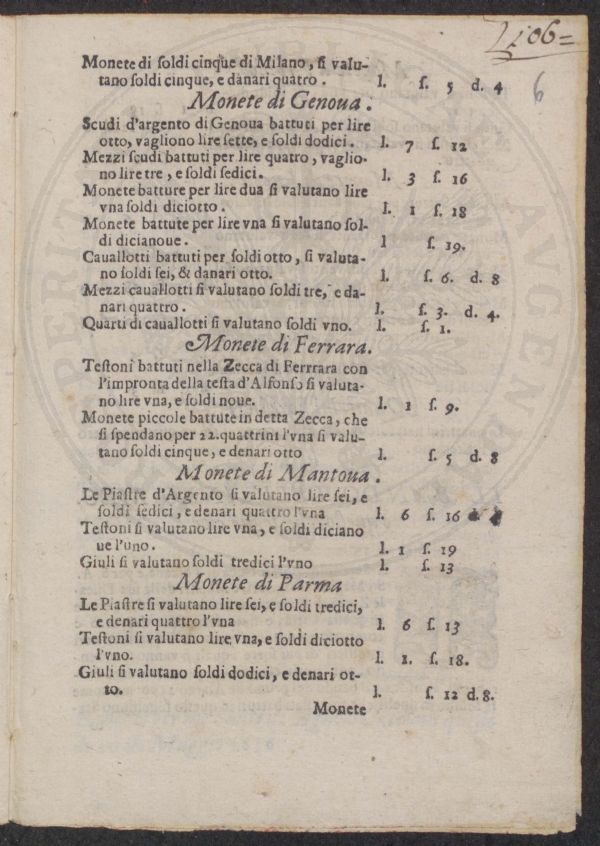 1106=
6
Monete di ſoldi cinque di Milano, ſi valu-
tano ſoldi cinque, e danari quatro. l. ſ. 5 d. 4
Monete di Genoua.
Scudi d'argento di Genoua battuti per lire
otto, vagliono lire ſette, e ſoldi dodici. l. 7 ſ. 12
Mezzi ſcudi battuti per lire quatro, vaglio-
no lire tre, e ſoldi ſedici. l. 3 ſ. 16
Monete batture per lire dua ſi valutano lire
vna ſoldi diciotto. l. 1 ſ. 18
Monete battute per lire vna ſi valutano ſol-
di dicianoue. l ſ. 19.
Cauallotti battuti per ſoldi otto, ſi valuta-
no ſoldi ſei, & danari otto. l. ſ. 6. d. 8
Mezzi cauallotti ſi valutano ſoldi tre, e da-
nari quattro. l. ſ. 3. d. 4.
Quarti di cauallotti ſi valutano ſoldi vno. l. ſ. 1.
Monete di Ferrara.
Teſtoni battuti nella Zecca di Ferrrara con
l'impronta della teſta d'Alfonſo ſi valuta-
no lire vna, e ſoldi noue. l. 1 ſ. 9.
Monete piccole battute in detta Zecca, che
ſi ſpendano per 22. quattrini l'vna ſi valu-
tano ſoldi cinque, e denari otto l. ſ. 5 d. 8
Monete di Mantoua.
Le Piaſtre d'Argento ſi valutano lire ſei, e
ſoldi ſedici, e denari quattro l'vna l. 6 ſ. 16 d. 4
Teſtoni ſi valutano lire vna, e ſoldi diciano
ue l'uno. l. 1 ſ. 19
Giuli ſi valutano ſoldi tredici l'vno l. ſ. 13
Monete di Parma
Le Piaſtre ſi valutano lire ſei, e ſoldi tredici,
e denari quattro l'vna l. 6 ſ. 13
Teſtoni ſi valutano lire vna, e ſoldi diciotto
l'vno. l. 1. ſ. 18.
Giuli ſi valutano ſoldi dodici, e denari ot-
to. l. ſ. 12 d. 8.
Monete